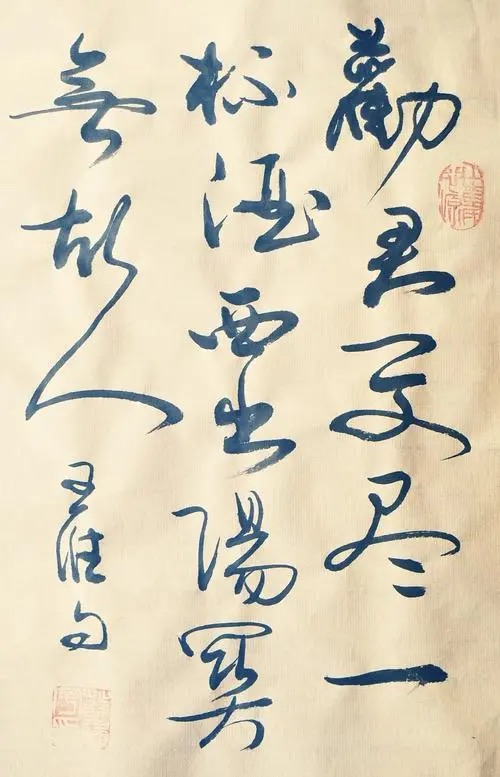 勸君更尽一
杯酒西出陽関
無故人
王維句